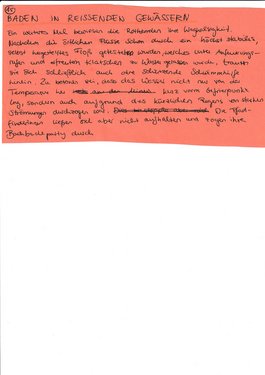 15
BADEN IN REISSENDEN GEWÄSSERN
Ein weiteres Mal bewiesen die Rothemden ihre Waghalsigkeit.
Nachdem die örtlichen Flüsse schon durch ein höchst stabiles,
selbst hergestelltes Floß getestet wurden, welches unter Anfeuerungs-
rufen und Klatschen zu Wasser gelassen wurde, trauten
sie sich schließlich auch ohne schützende Schwimmhilfe
hinein. Zu betonen sei, dass das Wasser nicht nur von der
Temperatur her kurz vorm Gefrierpunkt
lag, sondern auch aufgrund des kürzlichen Regens von starken
Strömungen durchzogen war. Die Pfad-
finderinnen ließen sich aber nicht aufhalten und zogen ihre
Bachbachparty durch